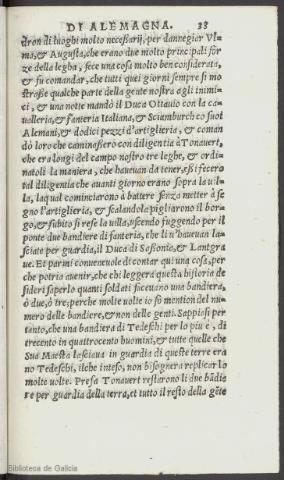 DI ALEMAGNA. 38
dron di luoghi molto necessarij, per dannegiar Vl-
ma, & Augusta, che erano due molto principali for
ze della legha, fece una cosa molto ben considerata,
& fu comandar, che tutti quei giorni sempre si mo
strasse qualche parte della gente nostra agli inimi-
ci, & una notte mandò il Duca Ottauio con la ca-
ualleria, & fanteria Italiana, & Sciamburch co suoi
Alemani, & dodici pezzi d'artiglieria, & coman
dò loro che caminassero con diligentia à Tonauert,
che era longi del campo nostro tre leghe, & ordi-
natoli la maniera, che haueuan da tener, essi fecero
tal diligentia che auanti giorno erano sopra la uil-
la, laqual cominciarono à battere senza metter à se
gno l'artiglieria, & scalandola pigliarono il bor-
go, & subito si rese la uilla, uscendo fuggendo per il
ponte due bandiere di fanteria, che li u'haueuan la-
sciate per guardia, il Duca di Sassonia, & Lantgra
ue. Et parmi conueneuole di contar qui una cosa, per
che potria auenir, che chi leggera questa historia de
sideri saperlo quanti soldati faceuano una bandiera,
ò due, ò tre; perche molte uolte io fò mention del nu-
mero delle bandiere, & non delle genti. Sappiasi per
tanto, che una bandiera di Tedeschi per lo piu è, di
trecento in quattrocento huomini, & tutte quelle che
Sua Maesta lasciaua in guardia di queste terre era
no Tedeschi, ilche inteso, non bisognera replicarlo
molte uolte. Presa Tonauert restarono li due bādie
re per guardia della terra, et tutto il resto della gēte
Biblioteca de Galicia